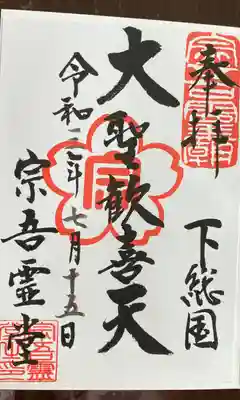 奉拝
下総国
大聖歓喜天
令和二年七月十五日
宗吾霊堂